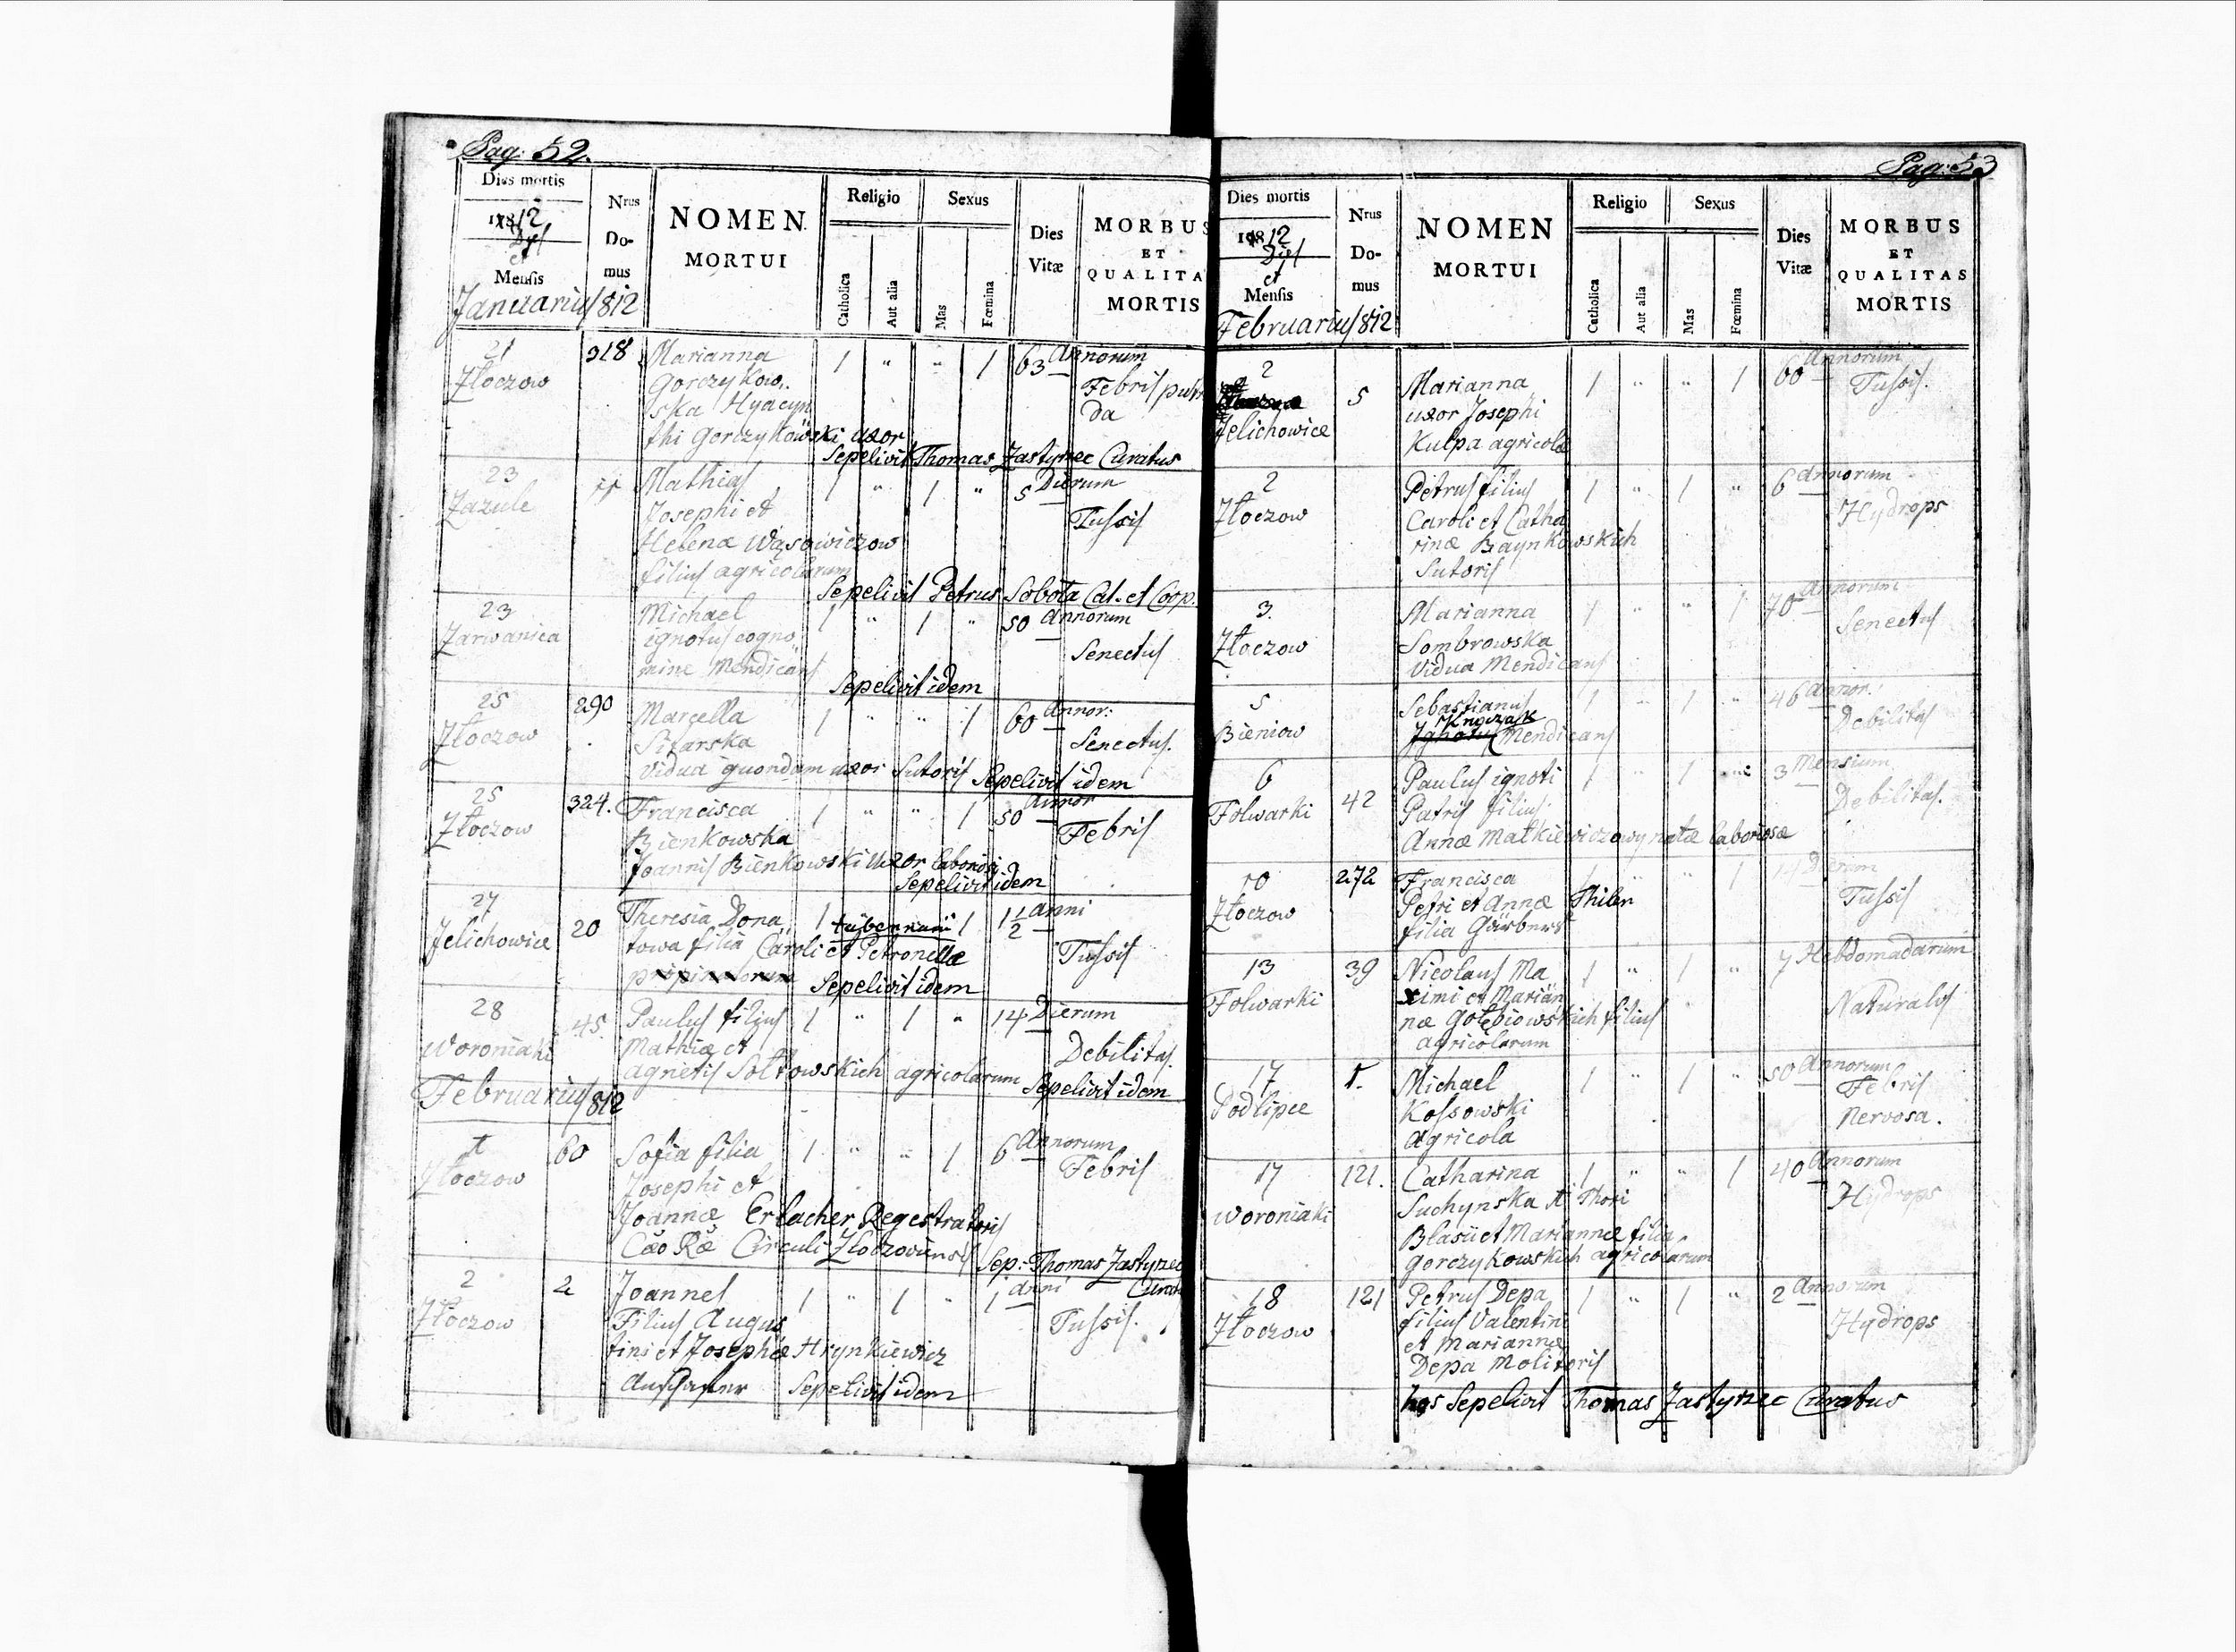 Pag: 52.
Dies mortis
1812
Dies
et
Mensis
Januarius 1812
Nrus
Do-
mus
NOMEN
MORTUI
Religio
Catholica
Aut alia
Sexus
Mas
Fœmina
Dies
Vitæ
MORBUS
ET
QUALITA
MORTIS
21 318 Marianna 1 " " 1 63 Annorum
Złoczow Gorczykow- Febris putri
ska Hyacyn da
thi Gorczykowski uxor
Sepelivit Thomas Zastyrzec Curatus
23 Mathias 1 " 1 " 5 Dierum
Zazule Josephi et Tussis
Helenæ Wąsowiczow
filius agricolarum
Sepelivit Petrus Sobota Cat. et Coop.
23 Michael 1 " 1 " 50 Annorum
Zarwanica ignotus cogno
mine Mendicans Senectus
Sepelivit idem
25 290 Marcella 1 " " 1 60 Annor:
Złoczow Sitarska Senectus.
vidua quondam uxor Sutoris Sepelivit idem
25 324. Francisca 1 " " 1 50 Annor
Złoczow Bienkowska Febris
Joannis Bienkowski uxor laboriosi
Sepelivit idem
27 20 Theresia Dona 1 1 1 1/2 Anni
Jelichowice towa filia Caroli et Petronellæ Tussis
propinatorum Sepelivit idem
28 45 Paulus filius 1 " 1 " 14 Dierum
Woroniaki Mathiæ et Debilitas
Agnetis Sołtowskich agricolarum Sepelivit idem
Februarius 1812
1 60 Sofia filia 1 " " 1 6 Annorum
Złoczow Josephi et Febris
Joannæ Erlacher Regestratoris
Cæo Ræ Circuli Złoczoviensis
Sep: Thomas Zastyrzec
2 2 Joannes 1 " 1 " 1 Anni
Złoczow Filius Augus Tussis.
tini et Josephæ Hrynkiewicz
Sepelivit idem
Pag: 53
Dies mortis
1812
Dies
et
Mensis
Februarius 1812
Nrus
Do-
mus
NOMEN
MORTUI
Religio
Catholica
Aut alia
Sexus
Mas
Fœmina
Dies
Vitæ
MORBUS
ET
QUALITAS
MORTIS
2 5 Marianna 1 " " 1 60 Annorum
Jelichowice uxor Josephi Tussis.
Kulpa agricolæ
2 Petrus filius 1 " 1 " 6 Annorum
Złoczow Caroli et Catha Hydrops
rinæ Baynkowskich
Sutoris
3. Marianna 1 " " 1 70 Annorum
Złoczow Sombrowska Senectus
Vidua Mendicans
5 Sebastianus 1 " 1 " 46 Annor:
Bieniow Ignotus Mendicans Debilitas
6 42 Paulus ignoti 1 " 1 3 Mensium
Folwarki Patris filius Debilitas.
Annæ Matkiewiczowy natæ laboriosæ
10 272 Francisca " " 1 Dierum
Złoczow Petri et Annæ Tussis
filia
13 39 Nicolaus Ma 1 " 1 " 7 Hebdomadarum
Folwarki ximi et Marian Naturalis
næ Gołębiowskich filius
agricolarum
17 1. Michael 1 " 1 " 50 Annorum
Podlipce Kossowski Febris
Agricola Nervosa.
17 121. Catharina 1 " " 1 40 Annorum
Woroniaki Suchynska Hydrops
Blasii et Mariannæ filia
Gorczykowskich agricolarum
18 121 Petrus Depa 1 " 1 " 2 Annorum
Złoczow filius Valentini Hydrops
et Mariannæ
Depa Molitoris
hos Sepelivit Thomas Zastyrzec Curatus